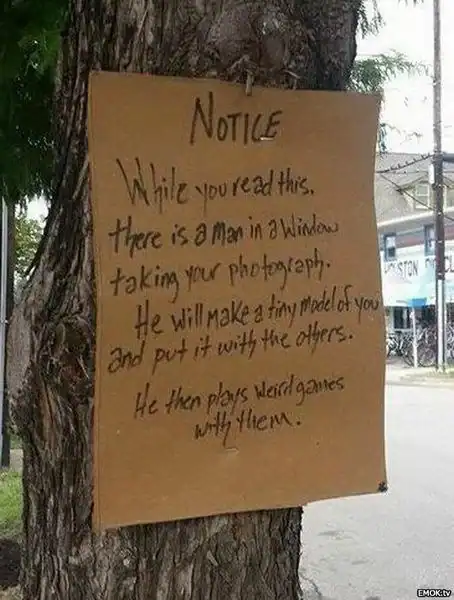 NOTICE
While you read this,
there is a man in a window
taking your photograph.
He will make a tiny model of you
and put it with the others.
He then plays weird games
with them.
EMOK.tv